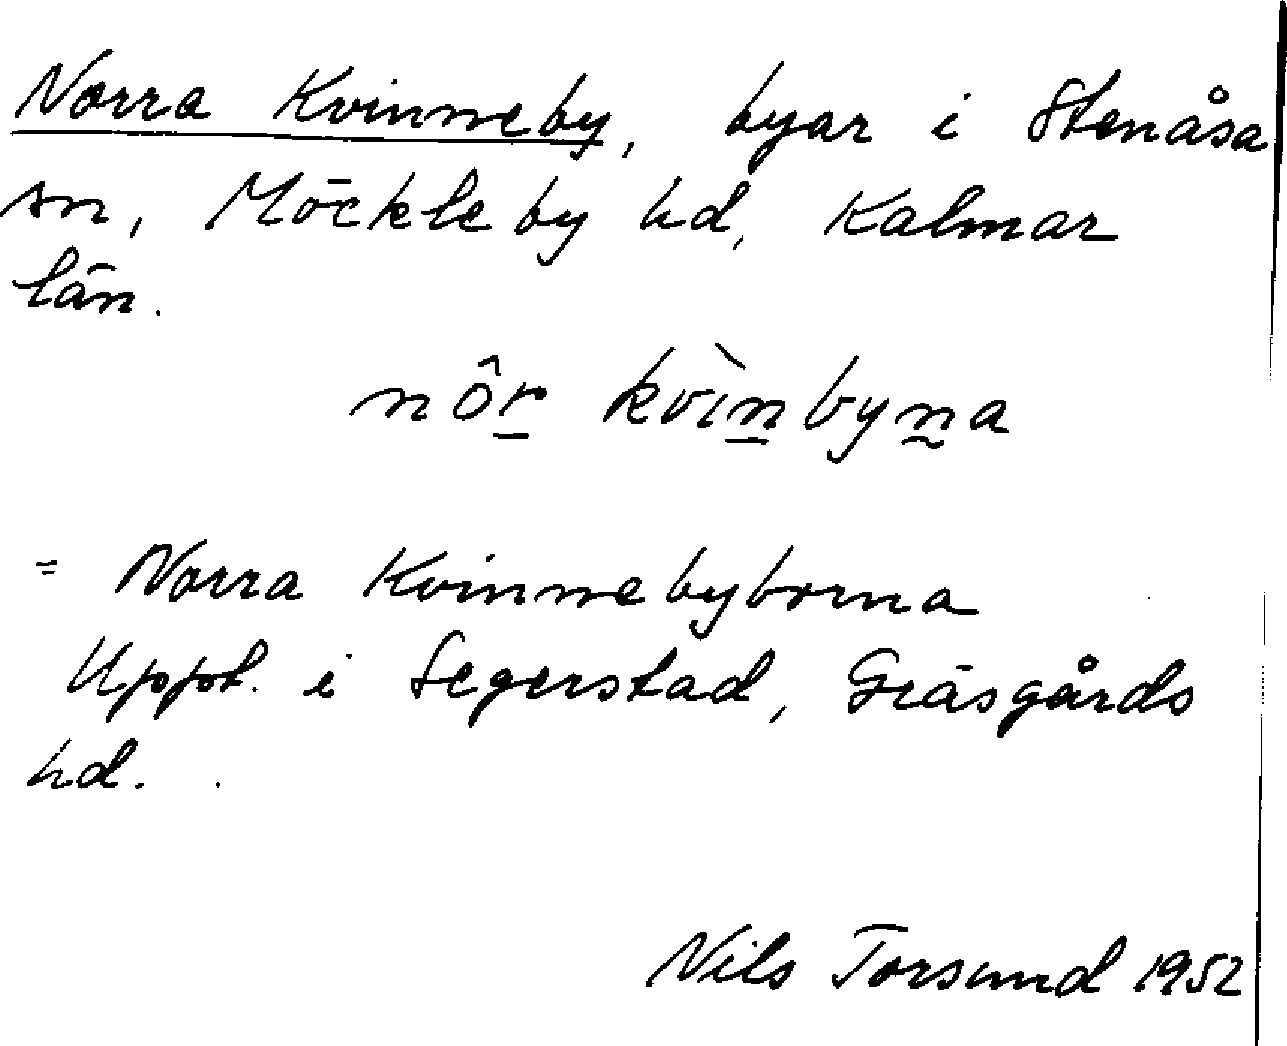 Norra Kvinneby, byar i Stenåsa
sn, Möckleby hd, Kalmar
län.
nôr̲ kvìn̲byn̰a
= Norra Kvinnebyborna
Uppt. i Segerstad, Gräsgårds
hd.
Nils Torsund 1952